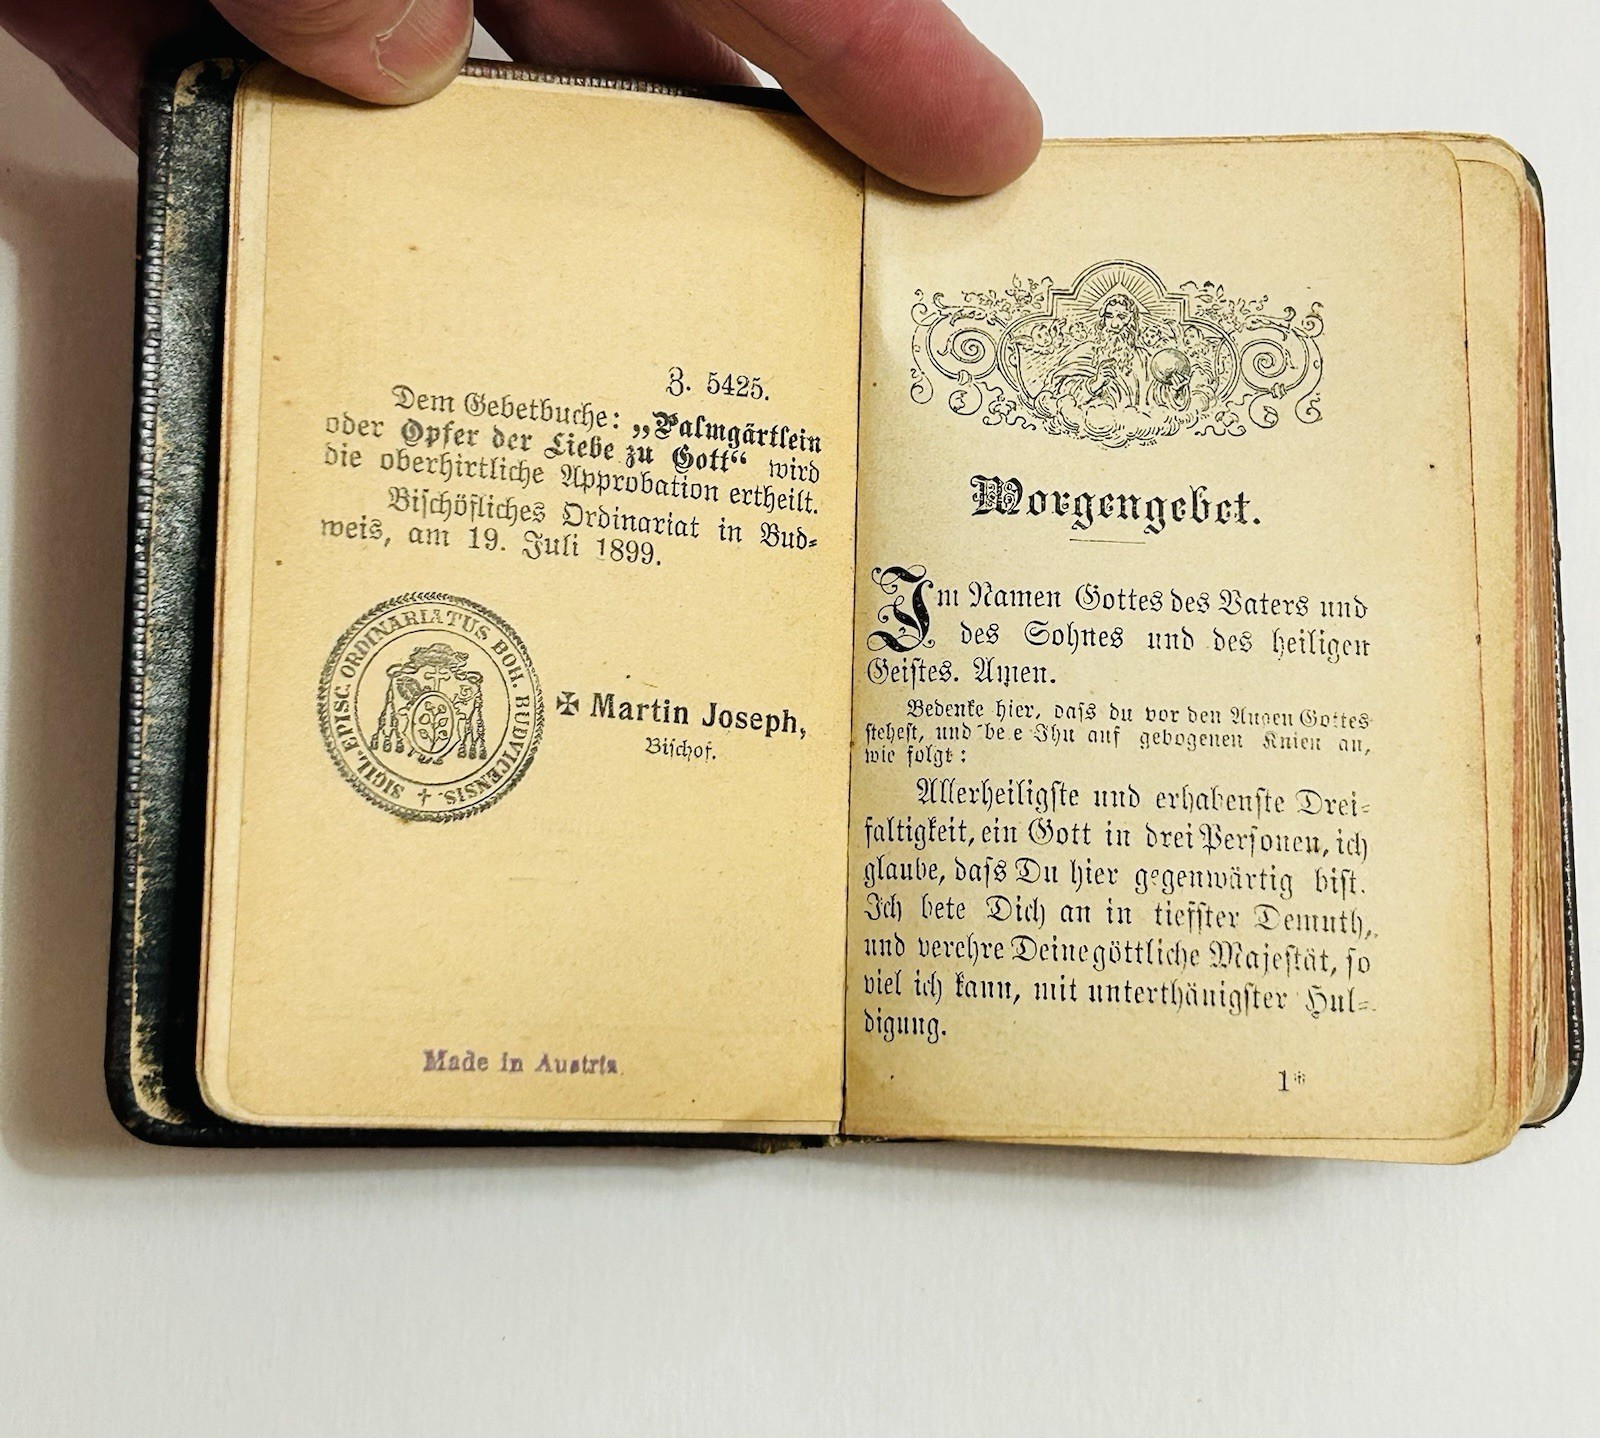 Z. 5425.
Dem Gebetbuche: „Palmgärtlein
oder Opfer der Liebe zu Gott“ wird
die oberhirtliche Approbation ertheilt.
Bischöfliches Ordinariat in Bud-
weis, am 19. Juli 1899.
SIGIL. EPISC. ORDINARIATUS BOH. BUDVICENSIS. ✝
✠ Martin Joseph,
Bischof.
Made in Austria
Morgengebet.
Im Namen Gottes des Vaters und
des Sohnes und des heiligen
Geistes. Amen.
Bedenke hier, dass du vor den Augen Gottes
stehest, und Ihn auf gebogenen Knien an,
wie folgt:
Allerheiligste und erhabenste Drei-
faltigkeit, ein Gott in drei Personen, ich
glaube, dass Du hier gegenwärtig bist.
Ich bete Dich an in tiefster Demuth,
und verehre Deine göttliche Majestät, so
viel ich kann, mit unterthänigster Hul-
digung.
1*